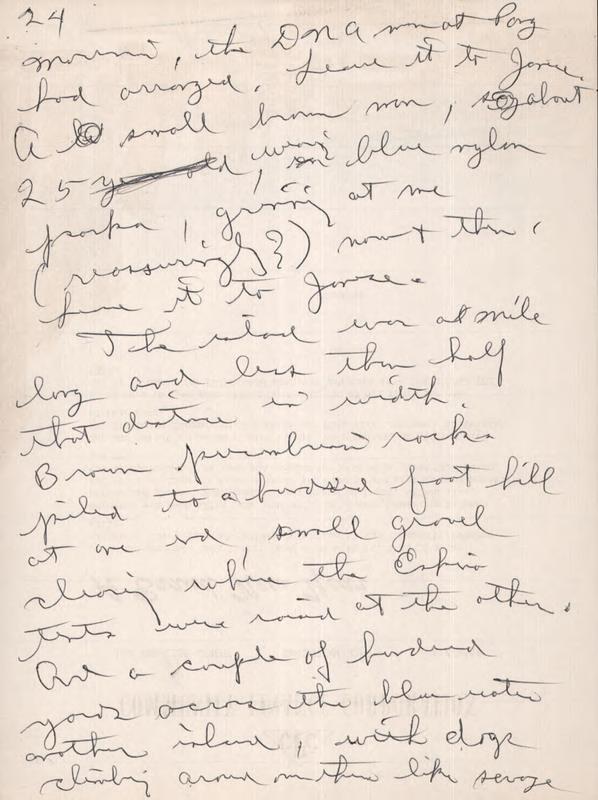 24
morning, the DNA man at Pang
had arranged. Leave it to Janice.
A small brown man, about
25, in blue nylon
parka, grinning at me
(reassuringly?) now + then.
Leave it to Janice.
The island was a ½ mile
long and less than half
that distance in width.
Brown precambrian rocks
piled to a hundred foot hill
at one end, small gravel
clearing where the Eskimo
tents were raised at the other.
And a couple of hundred
yards across the blue water
another island, with dogs
climbing around on there like savage